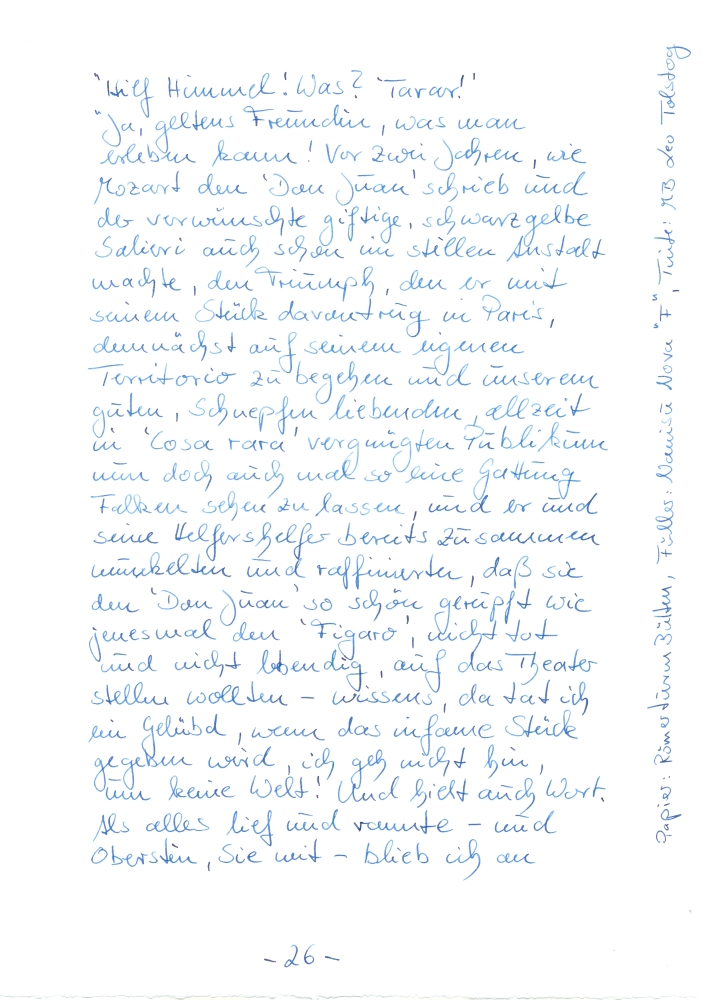 "Hilf Himmel! Was? 'Tarar!'
"Ja, geltens Freundin, was man
erleben kann! Vor zwei Jahren, wie
Mozart den 'Don Juan' schrieb und
der verwünschte giftige, schwarzgelbe
Salieri auch schon im stillen Anstalt
machte, den Triumph, den er mit
seinem Stück davontrug in Paris,
demnächst auf seinem eigenen
Territorio zu begehen und unserem
guten, Schnepfen liebenden, allzeit
in 'Cosa rara' vergnügten Publikum
nun doch auch mal so eine Gattung
Falken sehen zu lassen, und er und
seine Helfershelfer bereits zusammen
munkelten und raffinierten, daß sie
den 'Don Juan' so schön gerupft wie
jenesmal den 'Figaro', nicht tot
und nicht lebendig, auf das Theater
stellen wollten – wissens, da tat ich
ein Gelübd, wenn das infame Stück
gegeben wird, ich geh nicht hin,
um keine Welt! Und hielt auch Wort.
Als alles lief und rannte – und
Oberstin, Sie mit – blieb ich an
- 26 -
Papier: Römerturm Bütten, Füller: Nanisu Nova "F", Tinte: MB Leo Tolstoy